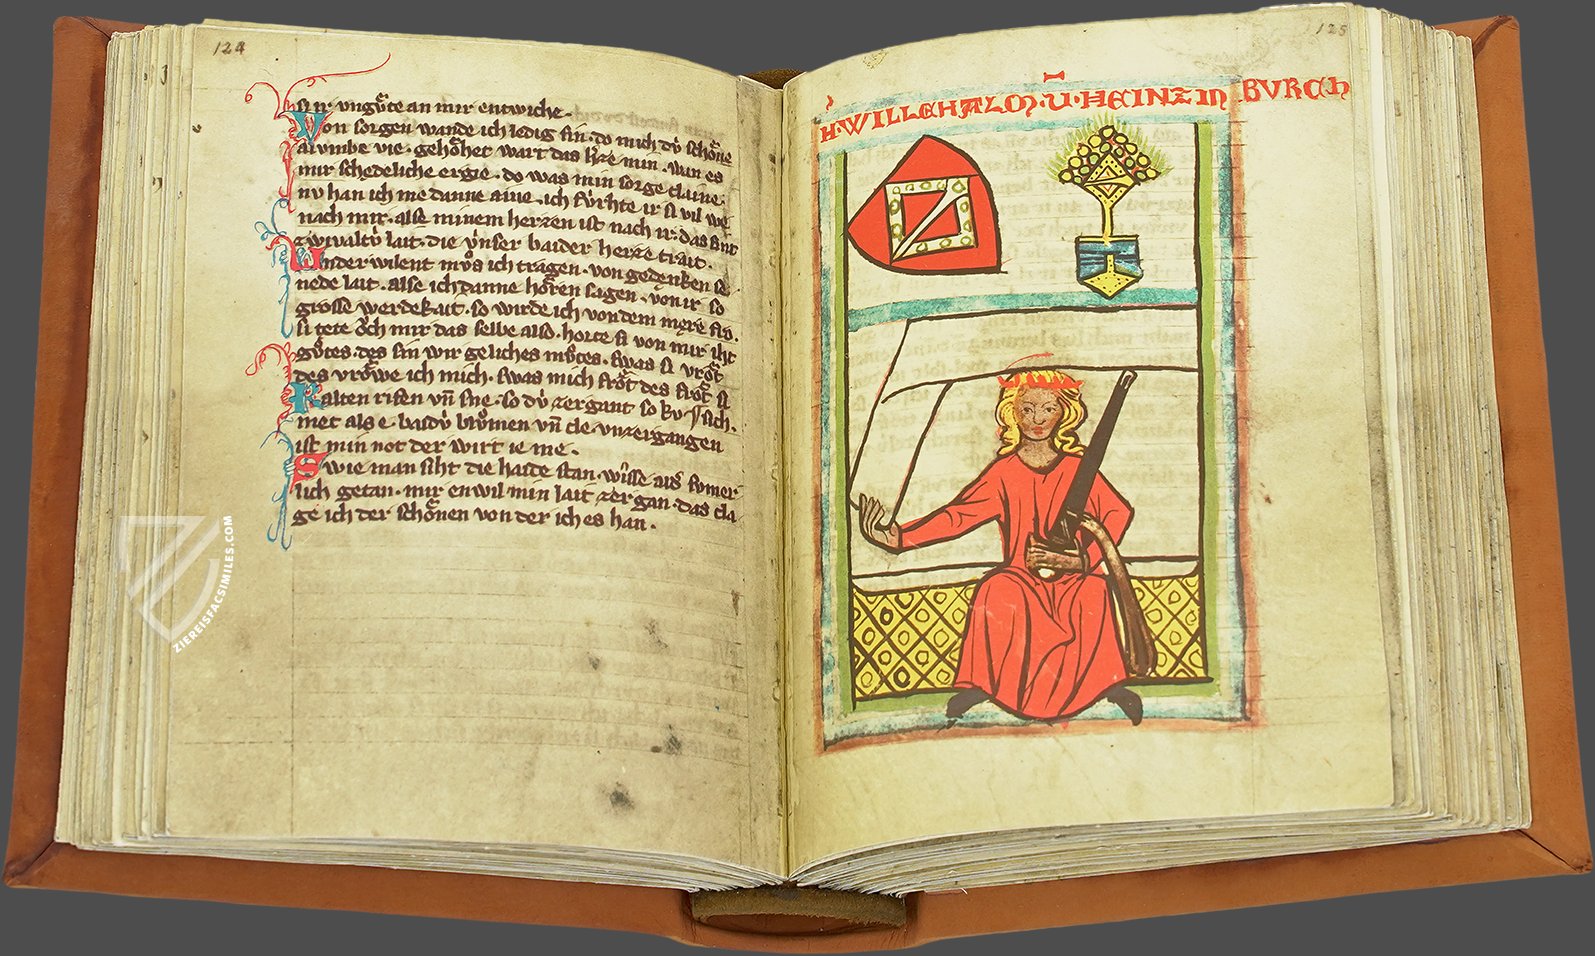 124
si ir vnguͤte an mir entwiche.
Von sorgen wande ich ledig sin. do mich dv̍ schoͤne
alvmbe vie. gehoͤhet wart das h̾ze min. wan es
mir schedeliche ergie. do was min sorge claine.
nv han ich me danne aine. ich fv̍rhte ir si vil we
nach mir. alse minem herzen ist nach ir. das sint
zwivaltv̍ lait. die vnser baider herze trait.
Wnder wilent mvͦs ich tragen. von gedenken se
nede lait. alse ich danne hoͤren sagen. von ir so
grosse werdekait. so wirde ich von dem mere fro.
si tete ŏch mir das selbe also. horte si von mir iht
guͦtes. des sin wir geliches muͦtes. swas si vroͤt
des vroͤwe ich mich. swas mich froͤt des froͤt si
Kalten rifen vn̄ sne. so dv̍ zergant so kv sich.
met als e. baidv̍ bluͦmen vn̄ cle vnzergangen
ist min not der wirt ie me.
Swie man siht die haide stan. wisse als svmer
lich getan. mir en wil min lait zergan. das cla
ge ich der schoͤnen von der ich es han.
125
H. WILLEHALM. V. HEINZINBVRCh
ZIEREISFACSIMILES.COM